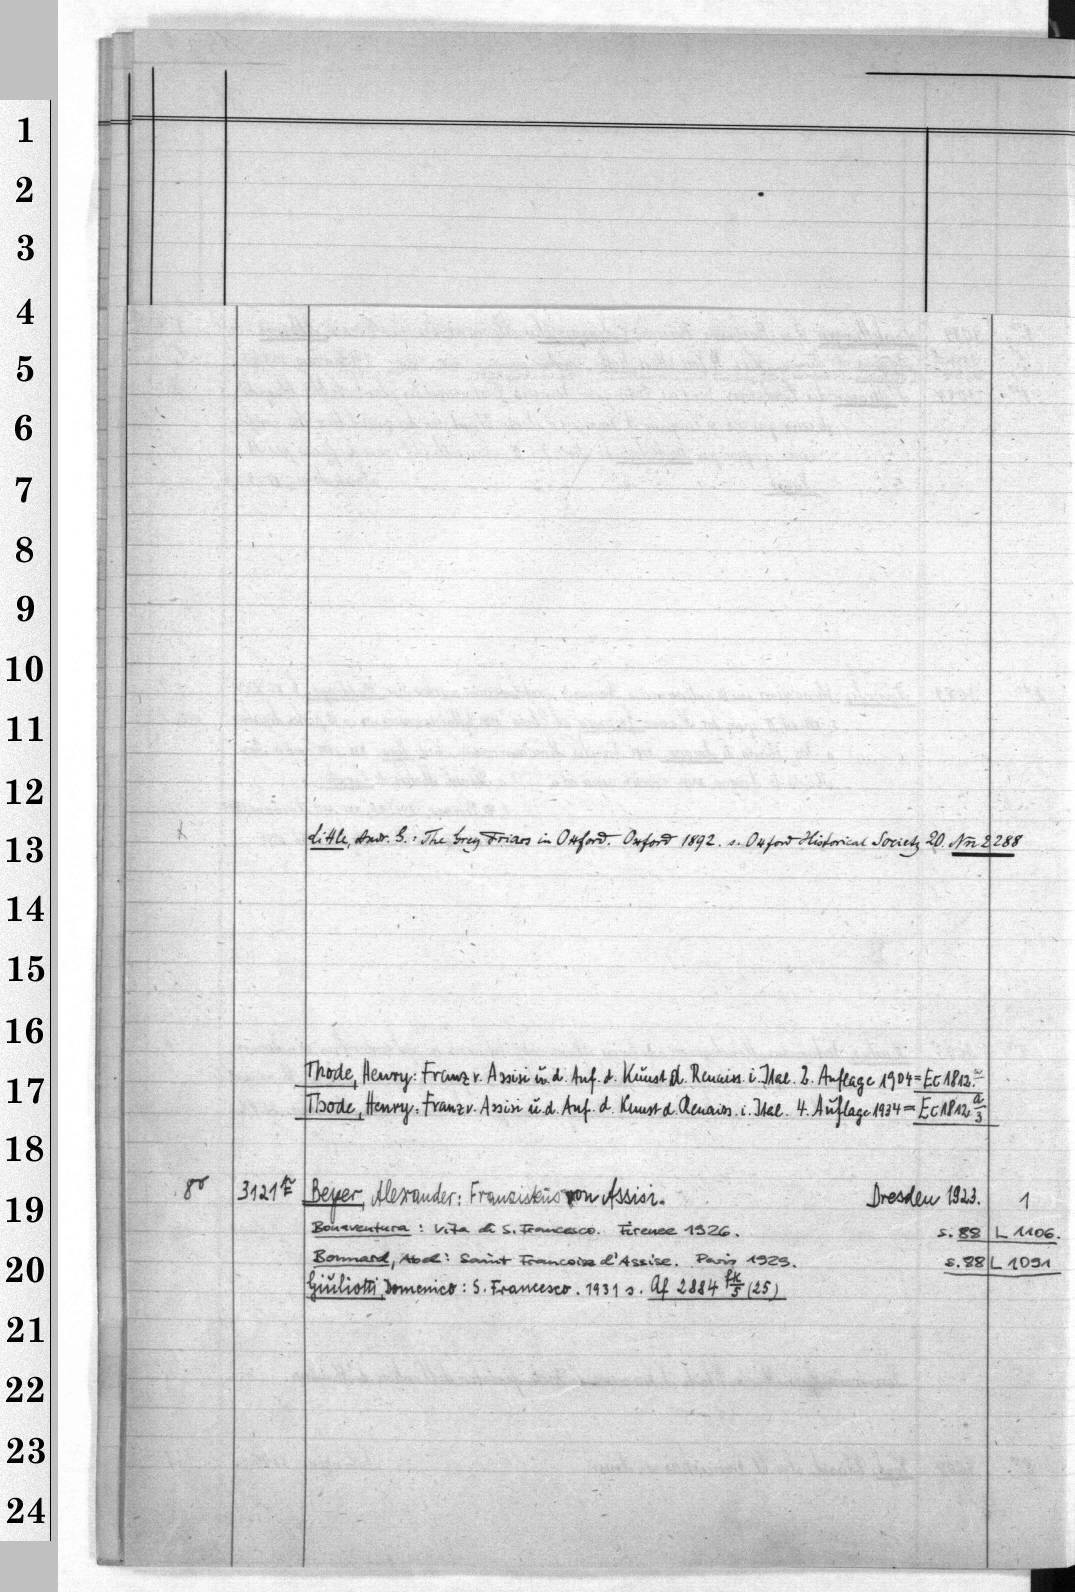 1
2
3
4
5
6
7
8
9
10
11
12
13
14
15
16
17
18
19
20
21
22
23
24
Little, Andr. G.: The Grey Friars in Oxford. Oxford 1892. s. Oxford Historical Society 20. Nn 2288
Thode, Henry: Franz v. Assisi u. d. Anf. d. Kunst d. Renaiss. i. Ital. 2. Auflage 1904 = Ec 1812.
Thode, Henry: Franz v. Assisi u. d. Anf. d. Kunst d. Renaiss. i. Ital. 4. Auflage 1934 = Ec 1812, a/3
8° 3121 Beyer, Alexander: Franziskus von Assisi. Dresden 1923. 1
Bonaventura: Vita di S. Francesco. Firenze 1926. s. 88 L 1106.
Bonnard, Abel: Saint François d'Assise. Paris 1929. s. 88 L 1091
Giuliotti, Domenico: S. Francesco. 1931 s. Af 2884 fk/5 (25)